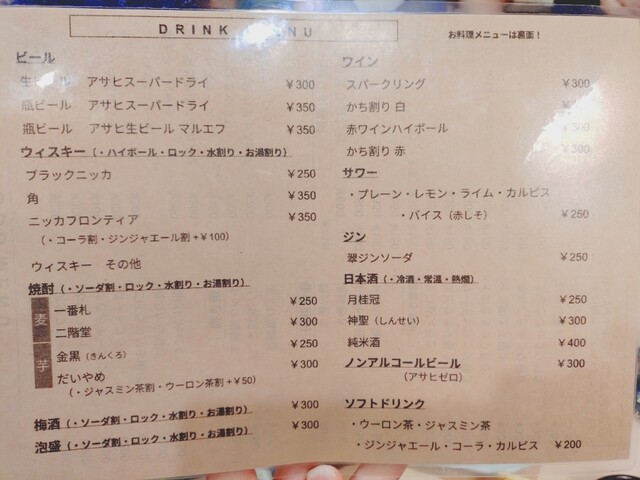 DRINK MENU
お料理メニューは裏面！
ビール
生ビール　アサヒスーパードライ ¥300
瓶ビール　アサヒスーパードライ ¥350
瓶ビール　アサヒ生ビール マルエフ ¥350
ウィスキー（・ハイボール・ロック・水割り・お湯割り）
ブラックニッカ ¥250
角 ¥350
ニッカフロンティア ¥350
（・コーラ割・ジンジャエール割＋¥100）
ウィスキー　その他
焼酎（・ソーダ割・ロック・水割り・お湯割り）
麦
一番札 ¥250
二階堂 ¥300
芋
金黒（きんくろ） ¥250
だいやめ ¥300
（・ジャスミン茶割・ウーロン茶割＋¥50）
梅酒（・ソーダ割・ロック・水割り・お湯割り） ¥300
泡盛（・ソーダ割・ロック・水割り・お湯割り） ¥300
ワイン
スパークリング ¥300
かち割り 白 ¥
赤ワインハイボール ¥300
かち割り 赤 ¥300
サワー
・プレーン・レモン・ライム・カルピス
・バイス（赤しそ） ¥250
ジン
翠ジンソーダ ¥250
日本酒（・冷酒・常温・熱燗）
月桂冠 ¥250
神聖（しんせい） ¥300
純米酒 ¥400
ノンアルコールビール ¥300
（アサヒゼロ）
ソフトドリンク
・ウーロン茶・ジャスミン茶
・ジンジャエール・コーラ・カルピス ¥200